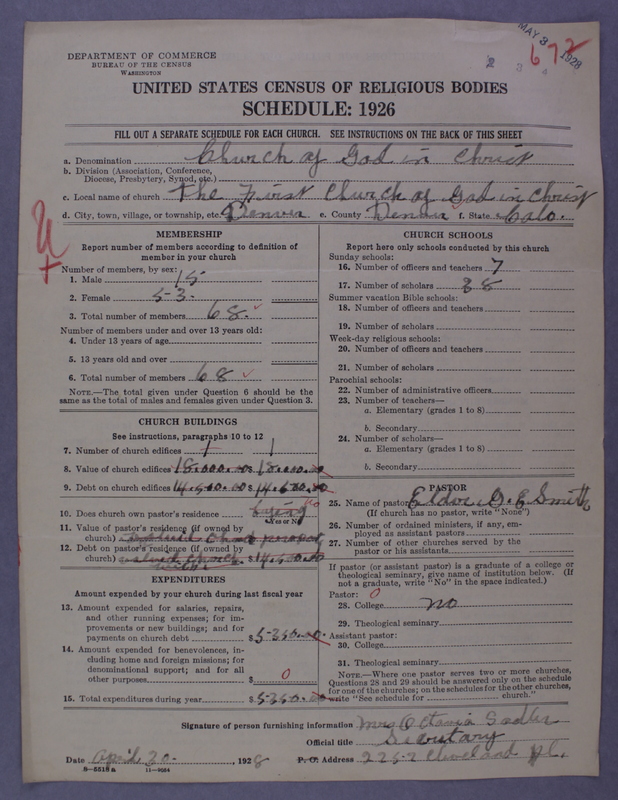 MAY 3 1928
2 3 4
672
DEPARTMENT OF COMMERCE
BUREAU OF THE CENSUS
WASHINGTON
UNITED STATES CENSUS OF RELIGIOUS BODIES
SCHEDULE: 1926
FILL OUT A SEPARATE SCHEDULE FOR EACH CHURCH. SEE INSTRUCTIONS ON THE BACK OF THIS SHEET
a. Denomination Church of God in Christ
b. Division (Association, Conference,
Diocese, Presbytery, Synod, etc.)
c. Local name of church The First Church of God in Christ
d. City, town, village, or township, etc. Denver e. County Denver f. State Colo.
MEMBERSHIP
Report number of members according to definition of
member in your church
Number of members, by sex:
1. Male 15
2. Female 53
3. Total number of members 68
Number of members under and over 13 years old:
4. Under 13 years of age
5. 13 years old and over
6. Total number of members 68
NOTE.—The total given under Question 6 should be
same as the total of males and females given under Question 3.
CHURCH BUILDINGS
See instructions, paragraphs 10 to 12
7. Number of church edifices 1 1
8. Value of church edifices 18.000.00 $ 18.000.00
9. Debt on church edifices 14.500.00 $ 14.500.00
10. Does church own pastor's residence
(Yes or No)
11. Value of pastor's residence (if owned by
church)
12. Debt on pastor's residence (if owned by
church) $ 14.500.00
EXPENDITURES
Amount expended by your church during last fiscal year
13. Amount expended for salaries, repairs,
and other running expenses; for im-
provements or new buildings; and for
payments on church debt $ 5350.00
14. Amount expended for benevolences, in-
cluding home and foreign missions; for
denominational support; and for all
other purposes $ 0
15. Total expenditures during year $ 5350.00
CHURCH SCHOOLS
Report here only schools conducted by this church
Sunday schools:
16. Number of officers and teachers 7
17. Number of scholars 38
Summer vacation Bible schools:
18. Number of officers and teachers
19. Number of scholars
Week-day religious schools:
20. Number of officers and teachers
21. Number of scholars
Parochial schools:
22. Number of administrative officers
23. Number of teachers—
a. Elementary (grades 1 to 8)
b. Secondary
24. Number of scholars—
a. Elementary (grades 1 to 8)
b. Secondary
PASTOR
25. Name of pastor Elder G. E. Smith
(If church has no pastor, write "None")
26. Number of ordained ministers, if any, em-
ployed as assistant pastors
27. Number of other churches served by the
pastor or his assistants
If pastor (or assistant pastor) is a graduate of a college or
theological seminary, give name of institution below. (If
not a graduate, write "No" in the space indicated.)
Pastor: 0
28. College no
29. Theological seminary
Assistant pastor:
30. College
31. Theological seminary
NOTE.—Where one pastor serves two or more churches,
Questions 28 and 29 should be answered only on the schedule
for one of the churches; on the schedules for the other churches,
write "See schedule for church."
Signature of person furnishing information Mrs Octavia Sadler
Official title Secretary
Date April 30. , 1928 P. O. Address 2257 Cleveland Pl.
8-5518 a 11-9024